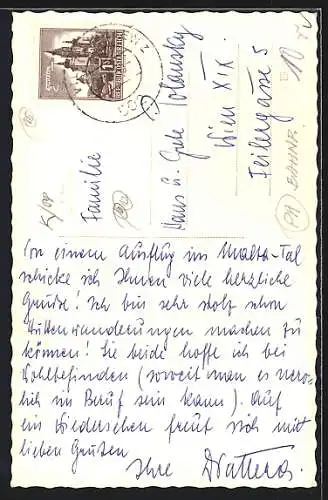 Von einem Ausflug ins Malta-Tal
schicke ich Ihnen viele herzliche
Grüße! Ich bin sehr stolz schon
Hüttenwanderungen machen zu
können! Sie beide hoffe ich bei
Wohlbefinden (soweit man es
im Beruf sein kann). Auf
ein Wiedersehen freut sich mit
lieben Grüßen
Ihre
Familie
Hans u. Grete
Wien XIX.
5
REPUBLIK ÖSTERREICH
10
BAHNP.